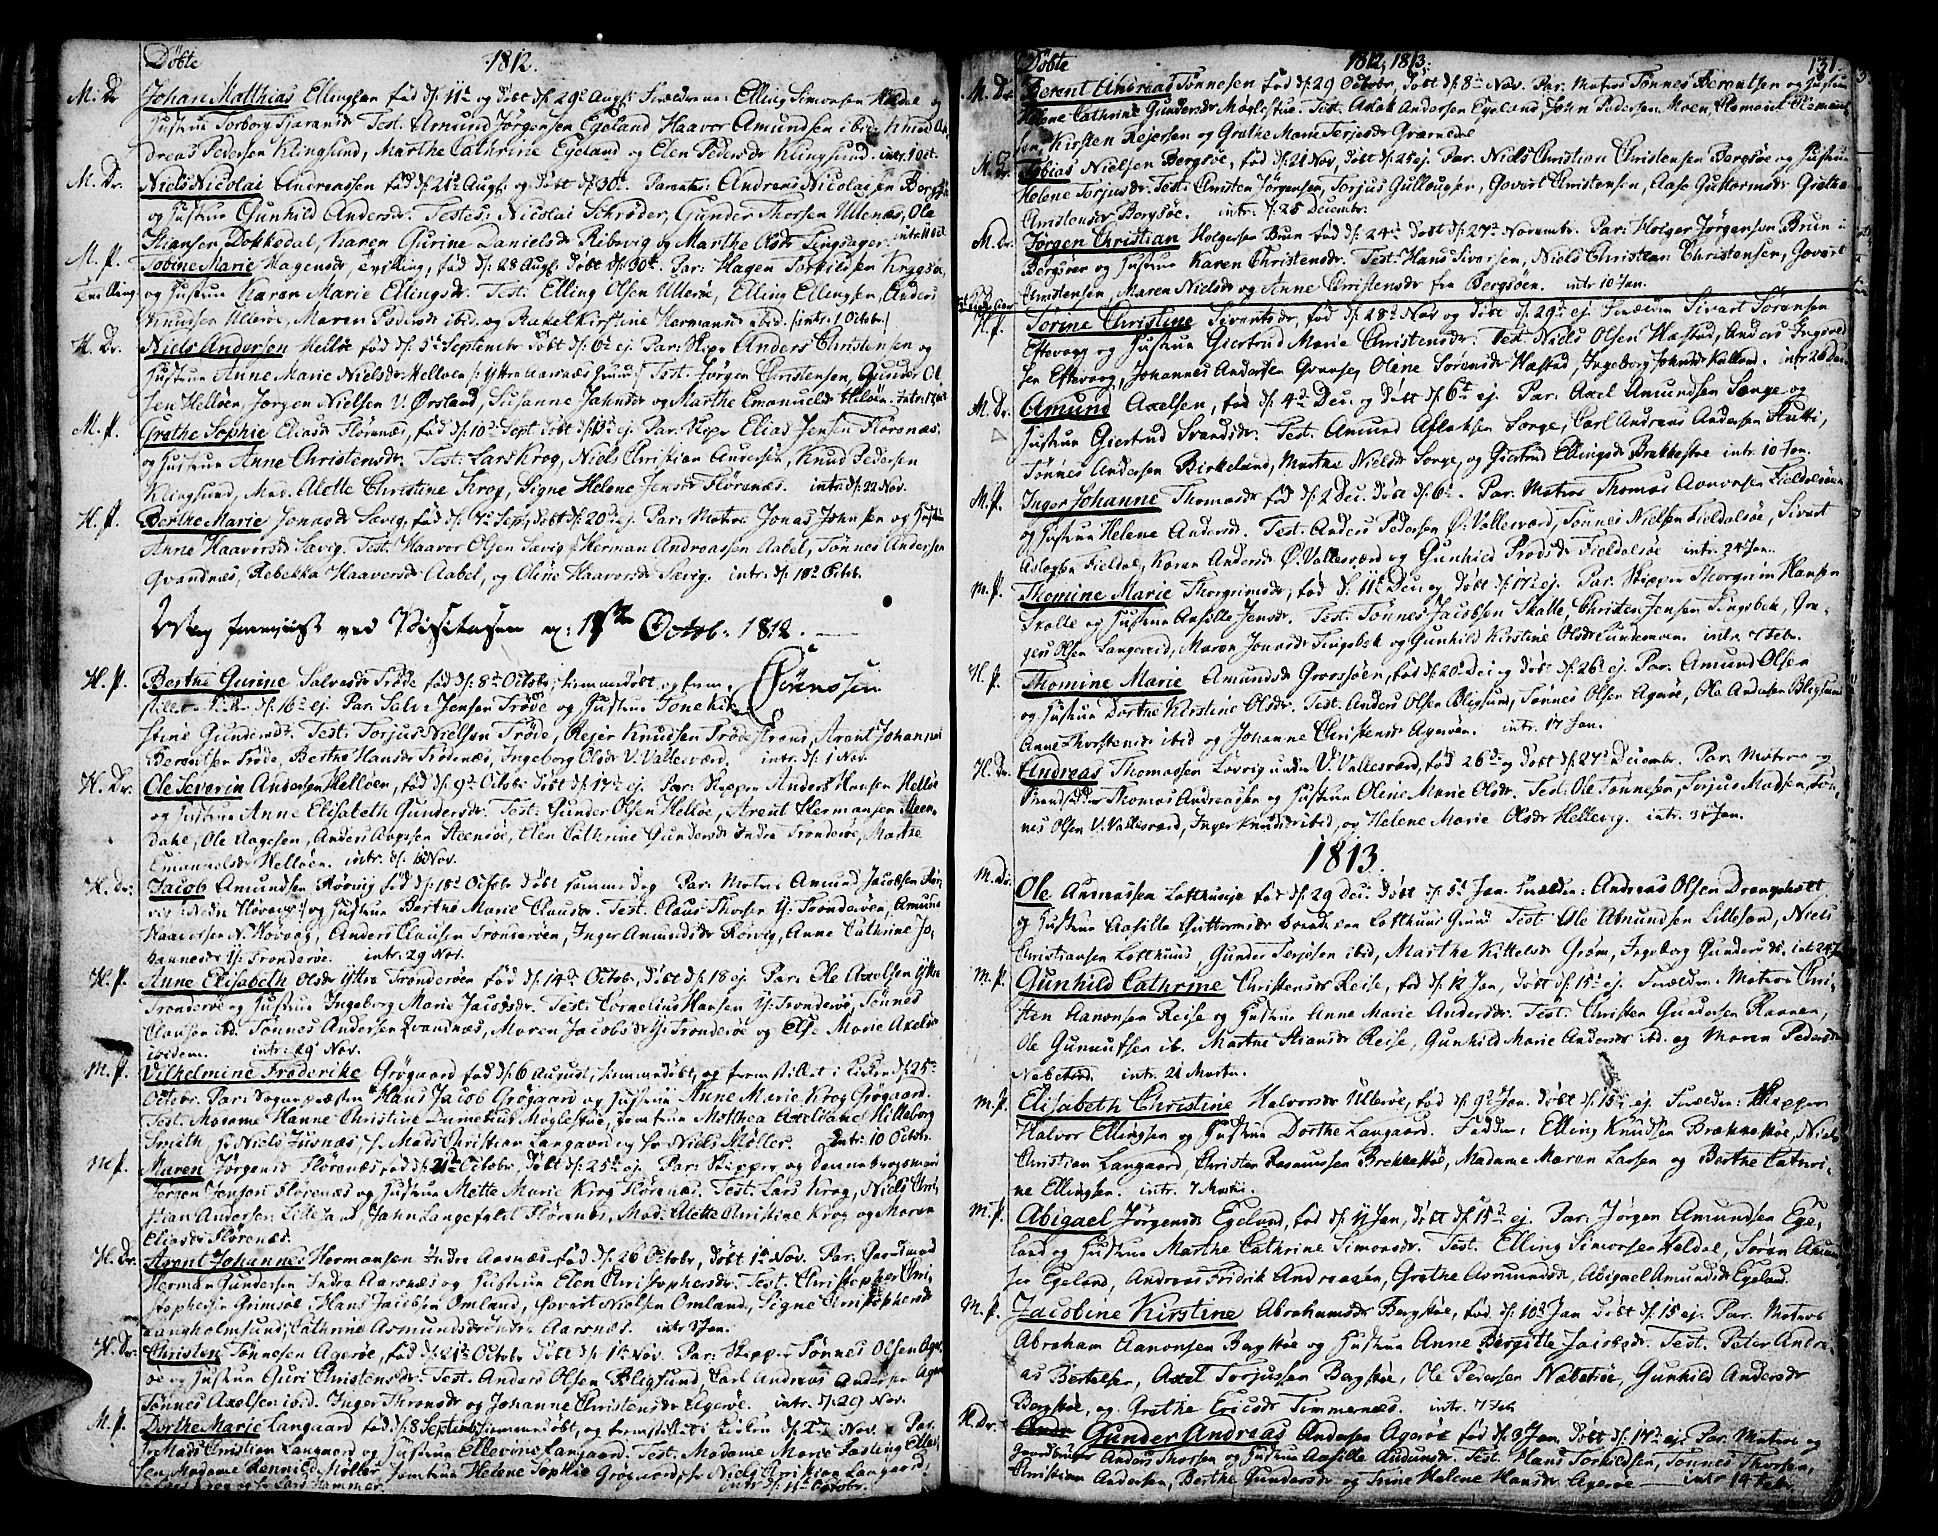 Döbte 1812.
M. Dr. Johan Matthias Ellingsen fød d. 11te og döbt d. 29de Aug. Forældrene: Elling Simonsen Heldal og
Hustrue Torborg Tjarandsdr. Test. Amund Jørgensen Egeland, Haavor Amundsen ibid. Knud An-
dreas Pedersen Klingsund, Marthe Cathrine Egeland og Elen Pedersdr Klingsund. intr. 1 Oct.
M. Dr. Niels Nicolai Andreassen fød d. 21de Aug. og döbt d. 30te. Parentes: Andreas Nicolaisen Bergsøe
og Hustrue Gunhild Andersdr. Testes: Nicolai Schrøder, Gunder Thorsen Ulenæs, Ole
Stiansen Dokkedal, Karen Gurine Danielsdr Ribevig og Marthe Olsdr Tingsager. intr. 11 Oct.
M. P. Tobine Marie Hagensdr, Tvilling, fød d. 28 Aug. döbt d. 30te. Par: Hagen Torkildsen Krogsøe,
Tvilling og Hustrue Karen Marie Ellingsdr. Test: Elling Olsen Ulleröe, Elling Ellingsen, Anders
Knudsen Ulleröe, Maren Pedersdr ibid. og Rakel Kirstine Hermansdr ibid. intr. 1 Octobr.
H. Dr. Niels Andersen Hellöe fød d. 5te Septembr döbt d. 6te ej. Par: Skipr Anders Christensen og
Hustrue Anne Marie Nielsdr Hellöen Test: Jørgen Christensen, Gunder Ol-
sen Hellöen, Jørgen Nielsen V. Ørsland, Susanne Jahnsdr og Marthe Emanuelsdr Helöen.
M. P. Grethe Sophie Eliasdr Flørenæs, fød d. 10de Sept. döbt d. 13de ej. Par. Skipr Elias Jensen Florenæs
og Hustrue Anne Christensdr. Test: Lars Krog, Niels Christian Andersen, Knud Pedersen
Klingsund, Mad. Alette Christine Krog, Signe Helene Jensdr Flørenæs. intr. d. 22 Nov.
H. P. Berthe Marie Jonasdr Sævig, fød d. 7de Sept, döbt d. 20de ej. Par: Matros Jonas Johnsen og Hustrue
Anne Haavorsdr Sævig. Test: Haavor Olsen Sævig, Herman Andreassen Aabel, Tønnes Andersen
Qvandnæs, Rebekka Haavorsdr Aabel, og Oline Haavorsdr Sævig. intr. d. 18de Octob.
ved Visitatsen Octob: 1812.
Sörenssen
H. P. Berthe Gurine Salvesdr Trøde fød d. 8de Octobr, hiemmedöbt og frem-
stillet i Kirken d. 16de ej. Par. Salve Jensen Trøde og Hustrue Tone Kir-
stine Gundersdr. Test: Torjus Nielsen Trøde, Rejer Knudsen Trødestrand, Arent Johannes
Berentsen Trøde, Berthe Hansdr Trönenæs, Ingeborg Olsdr V. Vallesværd. intr. d. 1 Nov.
H. Dr. Ole Severin Andersen Hellöen, fød d. 9de Octobr döbt d. 17de ej. Par. Skipper Anders Hansen Hellöe
og Hustrue Anne Elisabeth Gundersdr. Test: Gunder Olsen Hellöe, Arent Hermansen Steen-
Dahl, Ole Aagesen, Anders Aagesen Steensøe, Elen Cathrine Gundersdr Indre Trønderöe, Marthe
Emanuelsdr Hellöen. intr. d. Nov.
H. Dr. Jacob Amundsen Hövaag fød d. 18de Octobr döbt samme dag. Par: Matros Amund Jacobsen Hör-
og Hustrue Berthe Marie Clausdr. Test. Claus Thorsen Y. Trönderöen, Amund
Haavorsen N. Hövaag, Anders Clausen Trønderöen, Inger Amundsdr Hörvig, Anne Cathrine Jo-
hannesdr Y. Trønderöe. intr. 29 Nov.
H. P. Anne Elisabeth Olsdr Yttre Trønderöen fød d. 14de Octobr, döbt d. 18 ej. Par. Ole Axelsen Yttre
Trønderöe og Hustrue Ingeborg Marie Jacobsdr. Test: Cornelius Hansen Y. Trönderöe, Tønnes
Clausen ibd. Tønnes Andersen Qvandnæs, Maren Jacobsdr Y. Trønderöe og Else Marie Axelsdr
ibidem. intr. 29 Nov.
M. P. Vilhelmine Frederike Grögaard fød d. 6 August, hiemmedöbt, og fremstillet i Kirken d. 25de
Octobr. Par: Sognepræsten Hans Jacob Grögaard og Hustrue Anne Marie Krog Grögaard.
Test. Madame Hanne Christine Möglestue, Jomfrue Motthea Axeldahl Hilleborg
Smith, Hr Niels Juenæs, Hr Mads Christian Langaard og Hr Niels Møller. Intr: 10 Octobr.
M. P. Maren Jørgensdr Flørenæs, fød d. 21de Octobr, Döbt d. 25de ej. Par: Skipper og Dannebrogsmand
Jørgen Jensen Flørenæs og Hustrue Mette Marie Krog Flørenæs. Test. Lars Krog, Niels Chri-
stian Andersen Lillesand, Jahn Langefeldt Flørenæs, Mad: Alette Christine Krog og Maren
Eliasdr Flørenæs.
H. Dr. Arent Johannes Hermansen Indre Aarsnæs fød d. 26 Octobr, döbt 1te Nov. Par: Gaardmand
Herman Gundersen Indre Aarsnæs og Hustrue Elen Christophersdr. Test. Christopher Chri-
stophersen Grimsøe, Hans Jacobsen Omland, Govert Nielsen Omland, Signe Christophersdr
Langholmsund, Cathrine Asmundsdr Indre Aarsnæs. intr. 3 Jan.
H. Dr. Christen Tønnesen Ageröe, fød d. 21de Octobr döbt d. 1te Nov. Par: Skipper Tønnes Olsen Age-
röe og Hustrue Guri Christensdr. Test: Anders Olsen Bligsund, Carl Andreas Andersen Ageröe
Tønnes Axelsen ibid. Inger Thronsdr og Johanne Christensdr Ageröe. intr. d. 29 Nov.
M. P. Dorthe Marie Langaard fød d. 8 Septemb. hiemmedöbt, og fremstillet i Kirken d. Nov. Par.
Hr Mads Christian Langaard og Hustrue Ellevine Langaard. Test: Madame Marie Lasling Elle-
sen, Madame Møller, Jomfrue Helene Sophie Grøgaard, Hr Niels Christian Langaard,
og Hr Lars Hammer. intr. d. 11te Octobr.
Döbte 1812, 1813. 131.
M. Dr. Berent Andreas Tønnesen fød d. 29 Octobr, Döbt d. 8de Nov. Par. Matros Tønnes Berentsen og Hustrue
Helene Cathrine Gundersdr Møglestue. Test: Aslak Andersen Egeland, John Pedersen Moen, Clement Clement-
sen, Kirsten Rejersen og Grethe Marie Terjesdr Grærnede
M. Dr. Tobias Nielsen Bergsøe, fød d. 21 Nov, döbt d. 25 ej. Par. Niels Christian Christensen Bergsøe og Hustrue
Helene Torjusdr. Test: Christen Jørgensen, Torjus Gullougsen, Govert Christensen, Aase Guttormsdr Grethe
Christensdr Bergsøe. intr. d. 25 Decembr.
M. Dr. Jørgen Christian Holgersen Brun fød d. 24de Döbt d. 27de Novembr. Par: Holger Jørgensen Brun i
Bergsøen og Hustrue Karen Christensdr. Test: Hans Sivarsen, Niels Christian Christensen, Govert
Christensen, Maren Nielsdr og Anne Christensdr fra Bergsöen. intr. 10 Jan.
H. P. Serine Christine Sivertsdr, fød d. 28de Nov og döbt d. 29de ej. Forældre Sivert Sørensen
Eftevaag og Hustrue Giertrud Marie Christensdr. Test: Niels Olsen Hæstad, Anders Ingvald-
sen Eftevaag, Johannes Andersen Grorse, Oline Sørensdr Hæstad, Ingeborg Johnsdr Kalland. intr. 26 Dec.
M. Dr. Amund Axelsen, fød d. 4de Dec. og döbt d. 6te ej. Par. Axel Amundsen Sørge og
Hustrue Giertrud Svendsdr. Test. Amund Aslaksen Sørge, Carl Andreas Andersen Stutti,
Tønnes Andersen Birkeland, Marthe Nielsdr Sørge, og Giertrud Ellingsdr Brekkestøe intr. 10 Jan.
M. P. Inger Johanne Thomasdr fød d. 2 Dec. döbt d. 6te. Par. Matros Thomas Fieldalsøe
og Hustrue Helene Andersdr. Test. Anders Pedersen Ø. Vallesværd, Tønnes Nielsen Fieldalsøe, Sivert
Fieldal, Karen Andersdr Ø. Vallesværd og Gunhild Frodsdr Fieldalsøe intr. 24 Jan.
M. P. Thomine Marie Thorgrimsdr, fød d. 11te Dec og döbt d. 17de ej. Par. Skipper Thorgrim Hansen
Skalle og Hustrue Aasille Jensdr. Test: Tønnes Jacobsen Skalle, Christen Jensen Tingsbek, Gre-
gers Olsen Langerød, Maren Jonasdr Tingsbek og Gunhild Kirstine Olsdr Sundemoen. intr. 7 Feb.
H. P. Thomine Marie Amundsdr Grorsöen, fød d. 20de Dec og döbt d. 26de ej. Par. Amund Olsen
og Hustrue Dorthe Kirstine Olsdr. Test. Anders Olsen Bligsund, Tønnes Olsen Ageröe, Ole Andersen Bligsund
Anne Thorstensdr ibid og Johanne Christensdr Ageröen. intr. 17 Jan.
H. Dr. Andreas Thomassen Løvrig under V. Vallesværd, fød 26de og döbt d. 27de Decembr. Par. Matros og
Strandsidder Thomas Andreassen og Hustrue Oline Marie Olsdr. Test: Ole Tønnesen, Torjus Madsen, Tøn-
nes Olsen V. Vallesværd, Inger Knudsdr ibid, og Helene Marie Olsdr Hellevig. intr. 31 Jan.
1813.
M. Dr. Ole Andreassen Lofthuseje fød d. 29 Dec. Döbt d. 5te Jan. Forældre: Andreas Olsen Drangsholt
og Hustrue Aasille Guttormsdr Lofthuus Grund Test Ole Amundsen Lillesand, Niels
Christiansen Lofthuus, Gunder Terjesen ibid, Marthe Kittelsdr Grøm, Ingeborg Gundersdr ib. intr. 24 J.
M. P. Gunhild Cathrine Christensdr Reise, fød d. 12 Jan, döbt d. 15de ej. Forældre: Matros Chri-
sten Aanonsen Reise og Hustrue Anne Marie Andersdr. Test: Christen Gundersen Raanen,
Ole Gunnufsen ib. Marthe Stiansdr Reise, Gunhild Marie Andersdr ibd. og Maren Pedersdr
Næbetöe. intr. 21 Martii.
M. P. Elisabeth Christine Halvorsdr Ulleröe, fød d. 9de Jan. döbt d. 15de ej. Forældre: Skipper
Halvor Ellingsen og Hustrue Dorthe Langaard. Faddere: Elling Knudsen Brækkestøe, Niels
Christian Langaard, Christen Rasmussen Brekkestøe, Madame Maren Larsen og Berthe Cathri-
ne Ellingsen. intr. 7 Martii.
M. P. Abigael Jørgensdr Egeland, fød d. 11 Jan, döbt d. 15de ej. Par: Jørgen Amundsen Ege-
land og Hustrue Marthe Cathrine Simonsdr. Test. Elling Simonsen Heldal, Søren Amund-
sen Egeland, Andreas Fridrik Andreasen, Grethe Asmundsdr, Abigael Amundsdr Egeland.
M. P. Jacobine Kirstine Abrahamsdr Bergsøe, fød d. 10de Jan döbt d. 15 ej. Par. Matros
Abraham Aanonsen Bergsøe og Hustrue Anne Bergitte Jacobsdr. Test. Peter Andre-
as Bertelsen, Axel Torjussen Bergsøe, Ole Pedersen Næbetöe, Gunhild Andersdr
Bergsøe, og Grethe Ericsdr Timmernæs. intr. 7 Feb.
H. Dr. Gunder Andreas Andersen Ageröe fød d. 9 Jan, döbt d. 17de ej. Par. Matros og
Gaardbruger Anders Thorsen og Hustrue Aasille Audunsdr. Test: Hans Torkildsen, Tønnes Thorsen,
Christian Andersen, Berthe Gundersdr og Trine Helene Hansdr Ageröe intr 14 Febr.